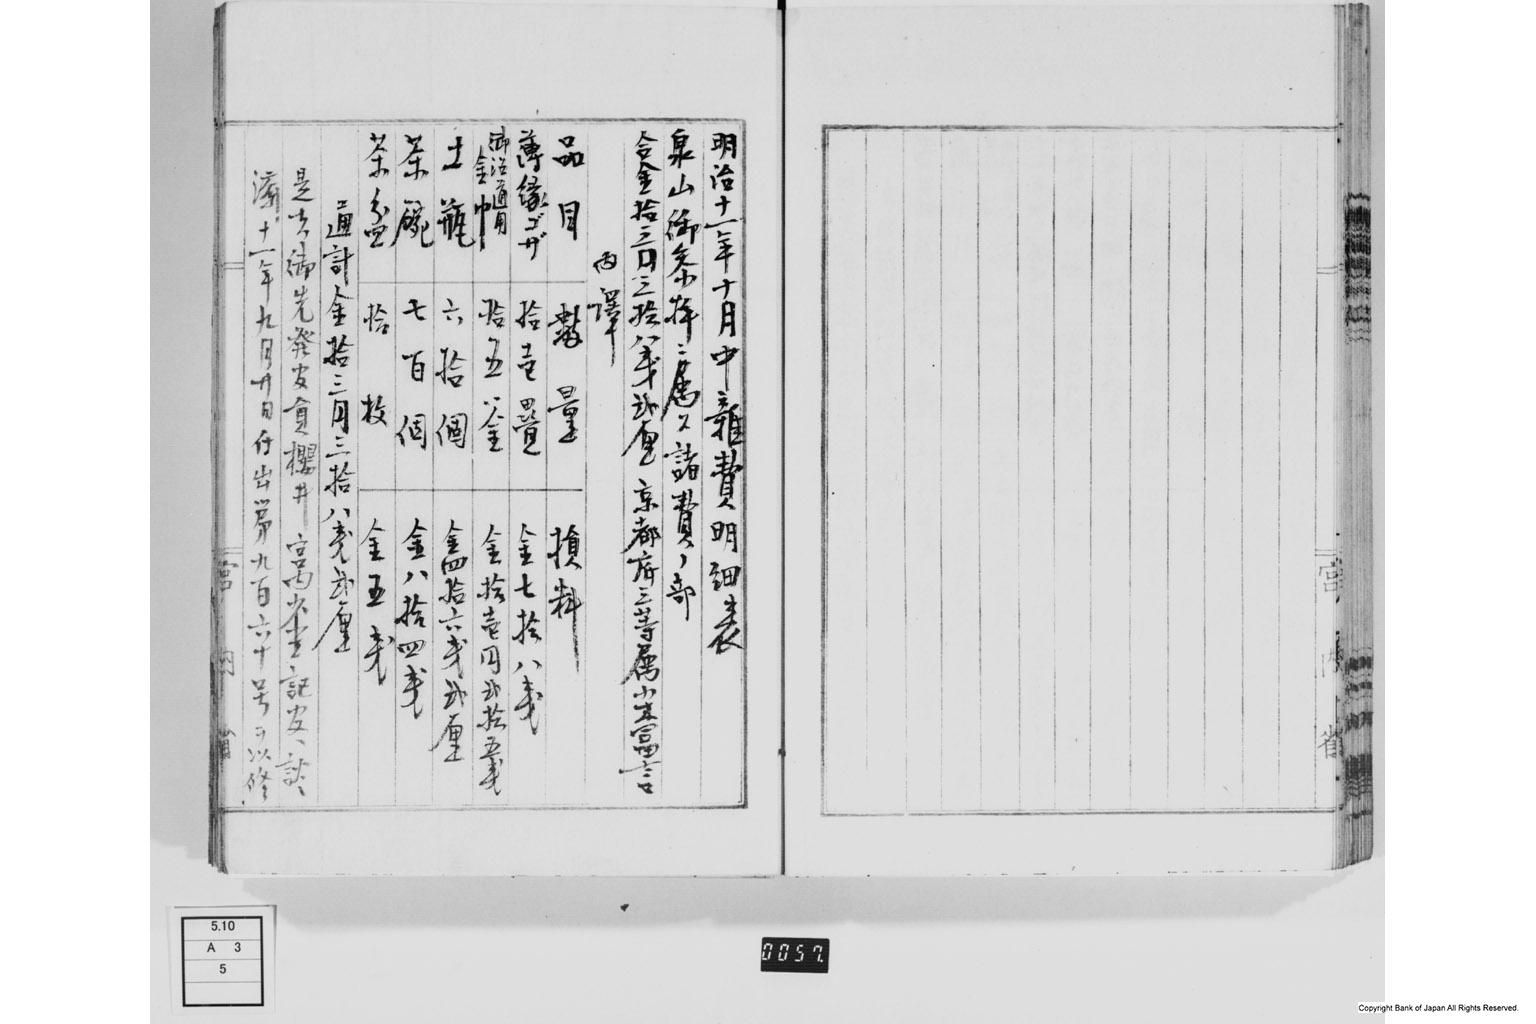 明治十一年十月中雑費明細表
泉山御参拝ニ属スル諸費ノ部
合金拾三円三拾八戔弐厘 京都府三等属
内譯
品目 數量 損料
薄縁ゴザ 拾壱疊 金七拾八戔
御沿道用
金 拾五 金拾壱円弐拾五戔
土瓶 六拾個 金四拾六戔弐厘
茶碗 七百個 金八拾四戔
茶盆 拾枚 金五戔
通計金拾三円三拾八戔弐厘
是ハ御先発官員櫻井宮内少書記官ヘ
済十一年九月廿日付出第九百六十号ヲ以
宮内省
宮内省
5.10
A 3
5
0057.
Copyright Bank of Japan All Rights Reserved.